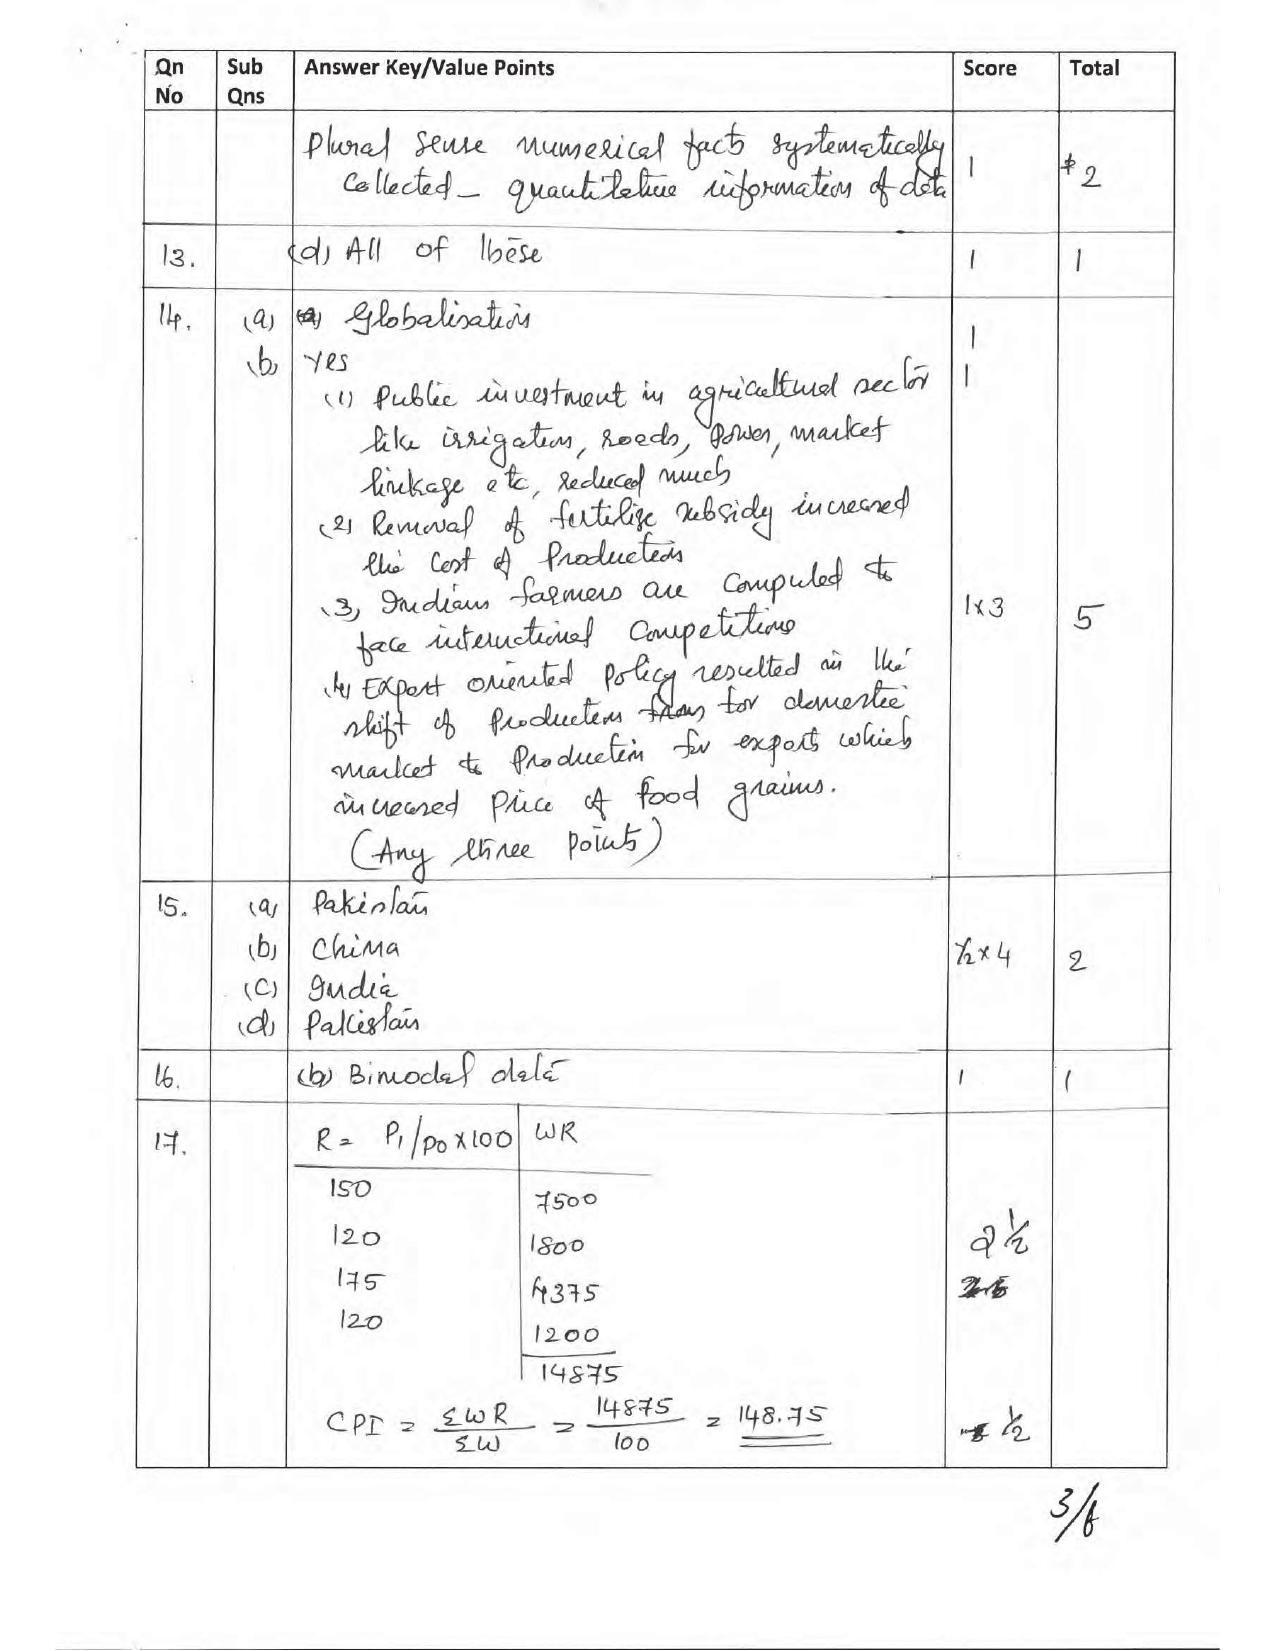 Qn No | Sub Qns | Answer Key/Value Points | Score | Total
Plural sense numerical facts systematically | 1 | 2
Collected – quantitative information of data
13. | (d) All of these | 1 | 1
14. | (a) Globalisation | 1
(b) Yes | 1
(1) Public investment in agricultural sector
like irrigation, roads, power, market
linkage etc, reduced much
(2) Removal of fertilize subsidy increased
the cost of Production
(3) Indians farmers are computed to | 1x3 | 5
face international Competitions
(4) Export oriented policy resulted in the
shift of Production for domestic
market to Production for export which
increased price of food grains.
(Any three points)
15. | (a) Pakistan
(b) China | ½ x 4 | 2
(c) India
(d) Pakistan
16. | (b) Bimodal data | 1 | 1
17. | R = P1/P0 x 100 | WR
150 | 7500
120 | 1800 | 2 ½
175 | 4375
120 | 1200
14875
CPI = ΣWR/ΣW = 14875/100 = 148.75 | ½